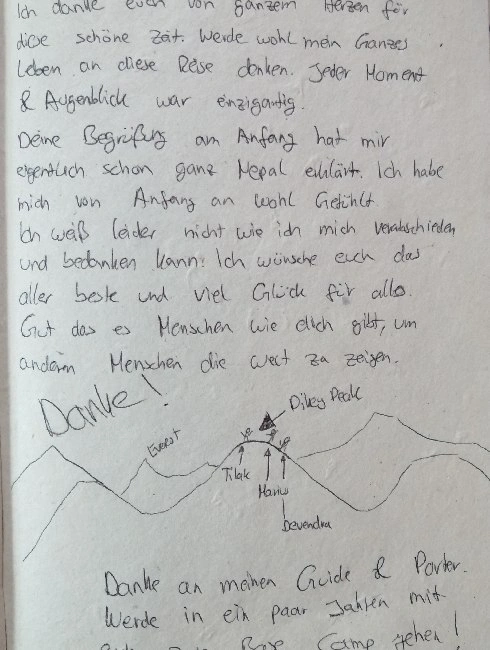 Ich danke euch von ganzem Herzen für
diese schöne Zeit. Werde wohl mein Ganzes
Leben an diese Reise denken. Jeder Moment
& Augenblick war einzigartig.
Deine Begrüßung am Anfang hat mir
eigentlich schon ganz Nepal erklärt. Ich habe
mich von Anfang an wohl Gefühlt.
Ich weiß leider nicht wie ich mich verabschieden
und bedanken kann. Ich wünsche euch das
aller beste und viel Glück für alles.
Gut das es Menschen wie dich gibt, um
anderen Menschen die Welt zu zeigen.
Danke!
Dikey Peak
Everest
Tilak
Devendra
Danke an meinen Guide & Porter.
Werde in ein paar Jahren mit
Camp gehen!